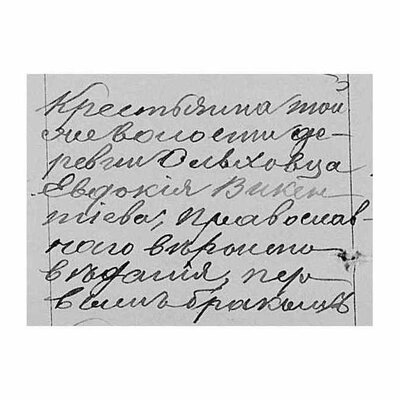 Крестьянина той
же волости де-
ревни Ольховца
Евдокія Викен
тіева, православ-
наго вѣроиспо
вѣданія, пер
вымъ бракомъ